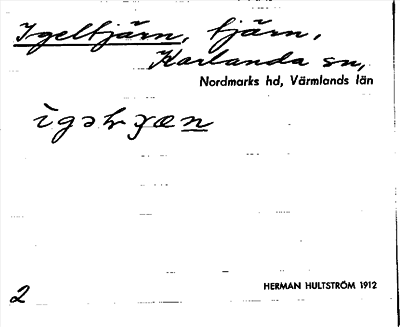 Igeltjärn, tjärn,
Karlanda sn,
Nordmarks hd, Värmlands län
2
HERMAN HULTSTRÖM 1912